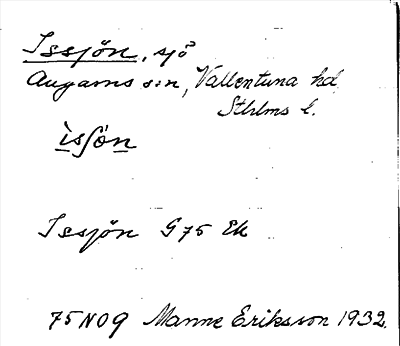 Issjön, sjö
Angarns sn, Vallentuna hd
Sthlms l.
ìsʃön
Issjön G75 Ek
75 NO 9 Manne Eriksson 1932.